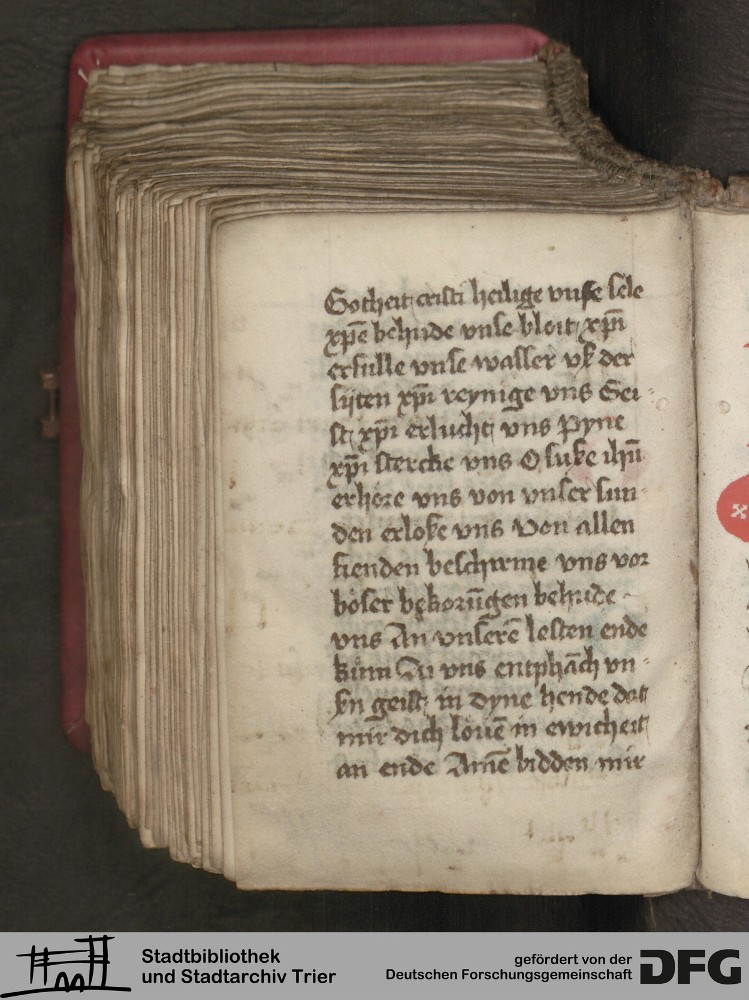 Gotheit cristi heilige vnse sele
xp̄e behude vnse bloit xp̄i
erfulle vnse wasser vß der
sijten xp̄i reynige vns Gei-
st xp̄i erlucht vns Pyne
xp̄i stercke vns O suße ihū
erhöre vns von vnser sun-
den erloße vns Von allen
fienden beschirme vns vor
böser bekorūgen behude
vns An vnserē lesten ende
kūm zu vns entphāch vn-
sn geist in dyne hende dat
mir dich louē in ewicheit
an ende Amē bidden mir
Stadtbibliothek
und Stadtarchiv Trier
gefördert von der
Deutschen Forschungsgemeinschaft
DFG